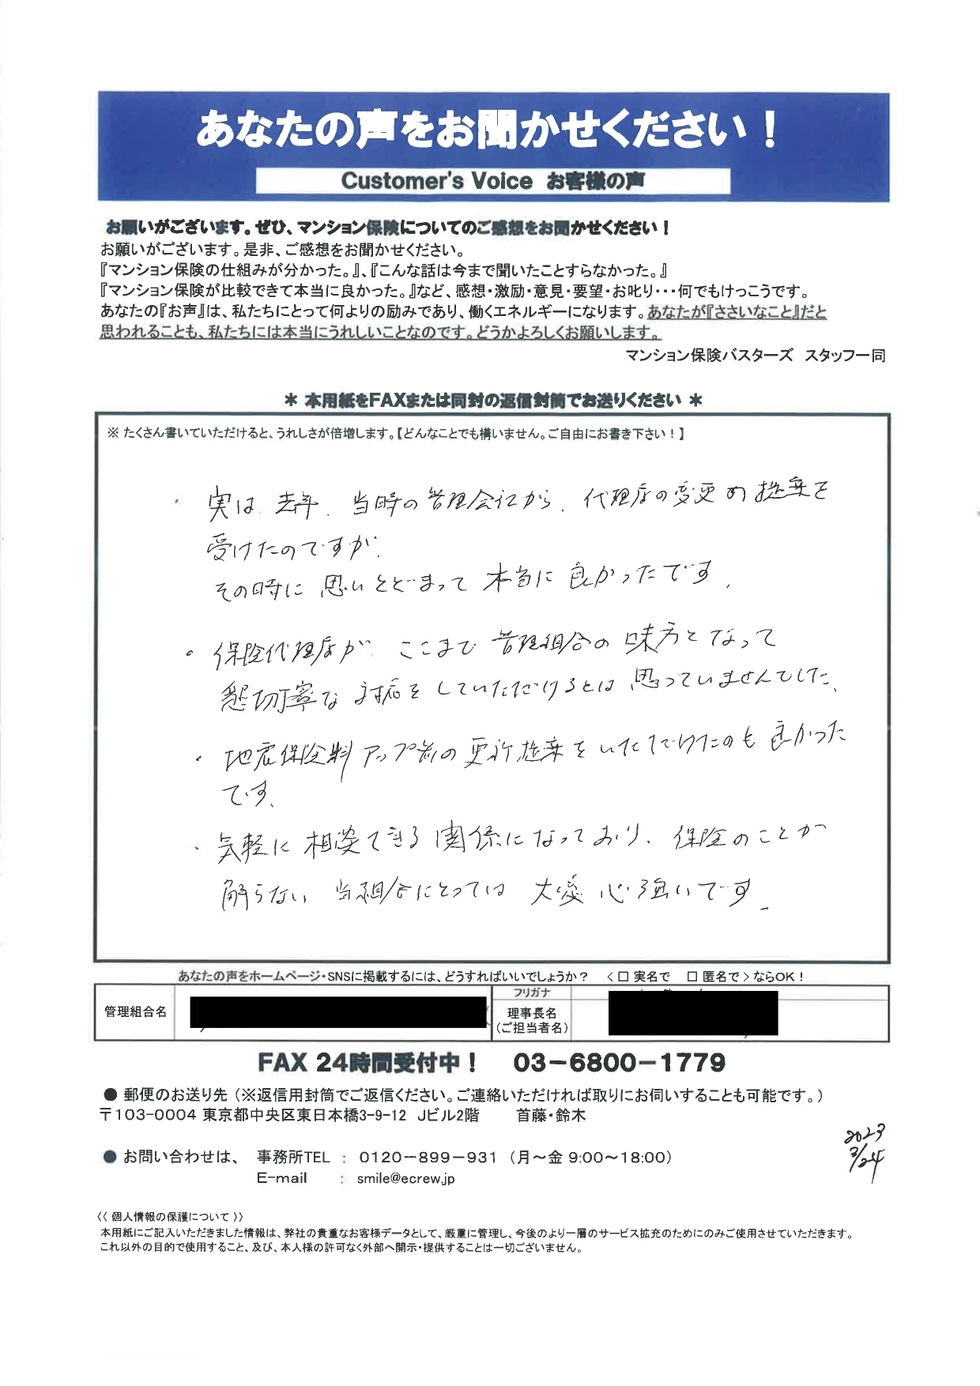 あなたの声をお聞かせください！
Customer's Voice お客様の声
お願いがございます。ぜひ、マンション保険についてのご感想をお聞かせください！
お願いがございます。是非、ご感想をお聞かせください。
『マンション保険の仕組みが分かった。』、『こんな話は今まで聞いたことすらなかった。』
『マンション保険が比較できて本当に良かった。』など、感想・激励・意見・要望・お叱り・・・何でもけっこうです。
あなたの『お声』は、私たちにとって何よりの励みであり、働くエネルギーになります。あなたが『ささいなこと』だと
思われることも、私たちには本当にうれしいことなのです。どうかよろしくお願いします。
マンション保険バスターズ スタッフ一同
＊ 本用紙をFAXまたは同封の返信封筒でお送りください ＊
※ たくさん書いていただけると、うれしさが倍増します。【どんなことでも構いません。ご自由にお書き下さい！】
・ 実は、去年、当時の管理会社から、代理店の変更の提案を
受けたのですが、
その時に思いとどまって本当に良かったです。
・ 保険代理店が、ここまで管理組合の味方となって
懇切丁寧な対応をしていただけるとは思っていませんでした。
・ 地震保険料アップ前の更新提案をいただけたのも良かった
です。
・ 気軽に相談できる関係になっており、保険のことが
解らない当組合にとっては大変心強いです。
あなたの声をホームページ・SNSに掲載するには、どうすればいいでしょうか？ ＜□ 実名で □ 匿名で＞ならOK！
管理組合名
フリガナ
理事長名
（ご担当者名）
FAX 24時間受付中！ 03－6800－1779
● 郵便のお送り先（※返信用封筒でご返信ください。ご連絡いただければ取りにお伺いすることも可能です。）
〒103-0004 東京都中央区東日本橋3-9-12 Jビル2階 首藤・鈴木
● お問い合わせは、 事務所TEL ： 0120－899－931 （月～金 9:00～18:00）
E-mail ： smile@ecrew.jp
2023
3/24
《 個人情報の保護について 》
本用紙にご記入いただきました情報は、弊社の貴重なお客様データとして、厳重に管理し、今後のより一層のサービス拡充のためにのみご使用させていただきます。
これ以外の目的で使用すること、及び、本人様の許可なく外部へ開示・提供することは一切ございません。